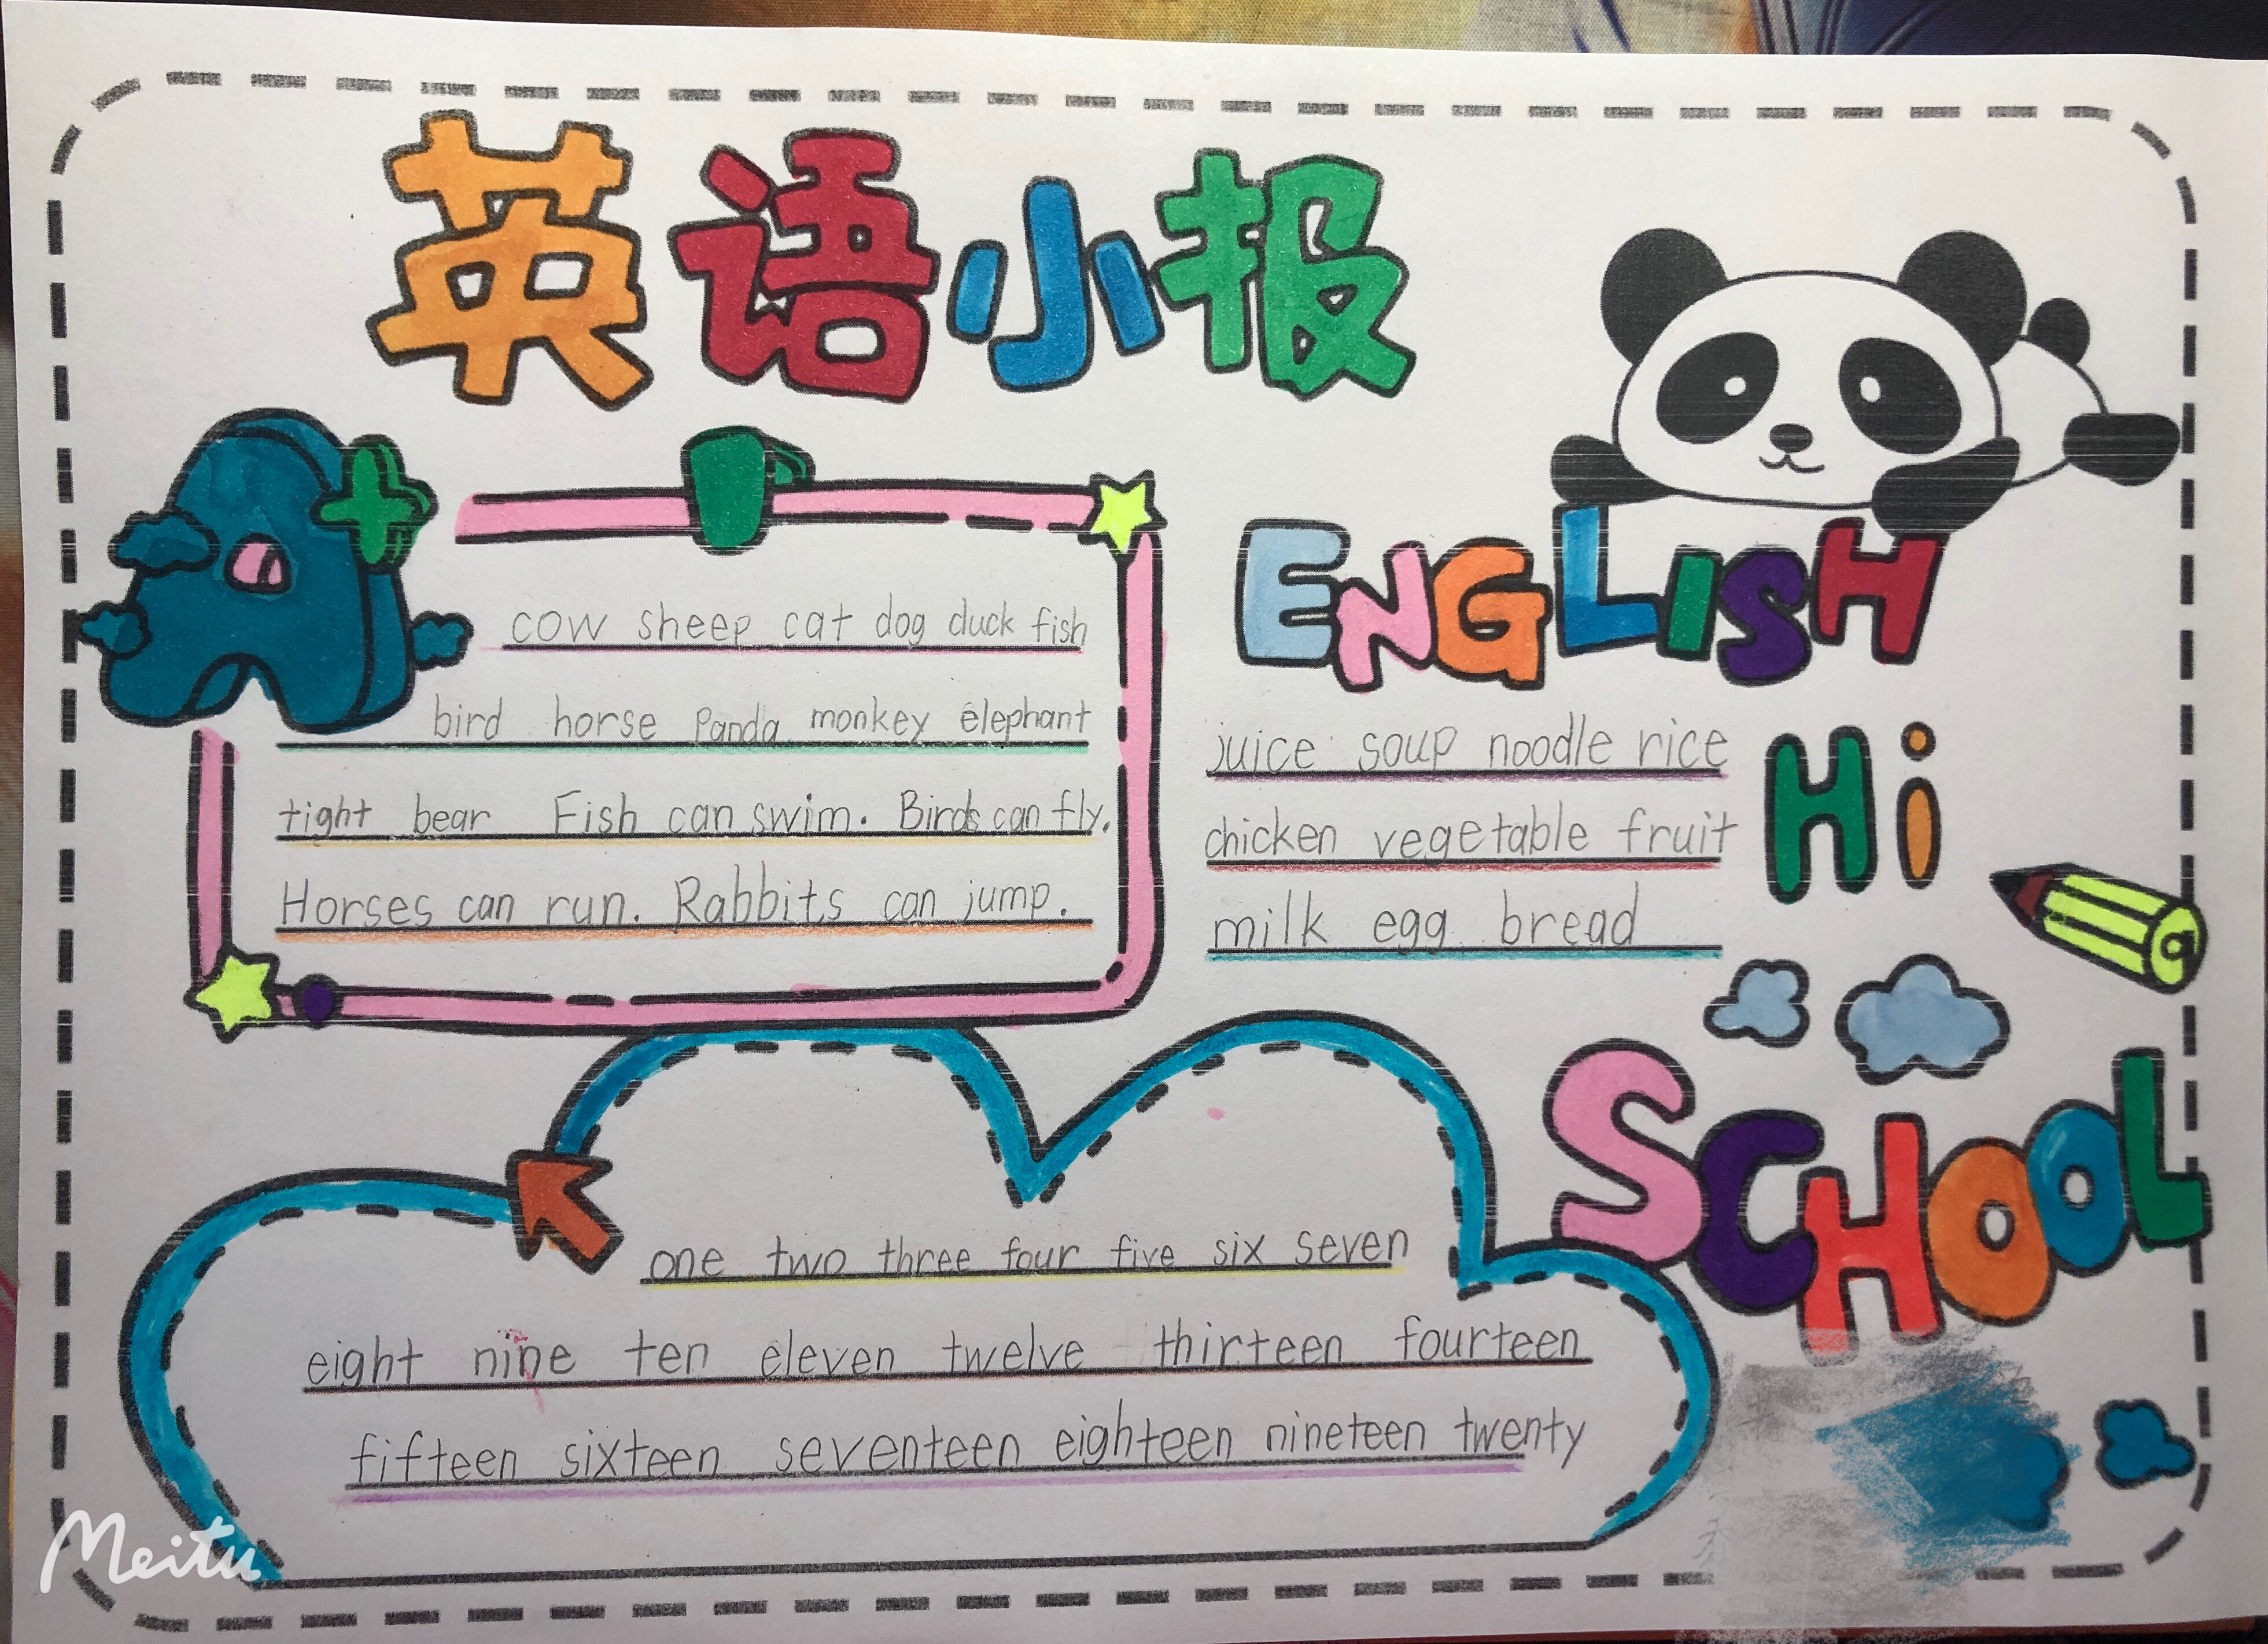 英语小报
cow sheep cat dog duck fish
bird horse Panda monkey elephant
tight bear Fish can swim. Birds can fly.
Horses can run. Rabbits can jump.
ENGLISH
juice soup noodle rice
chicken vegetable fruit
milk egg bread
Hi
SCHOOL
one two three four five six seven
eight nine ten eleven twelve thirteen fourteen
fifteen sixteen seventeen eighteen nineteen twenty
Meitu